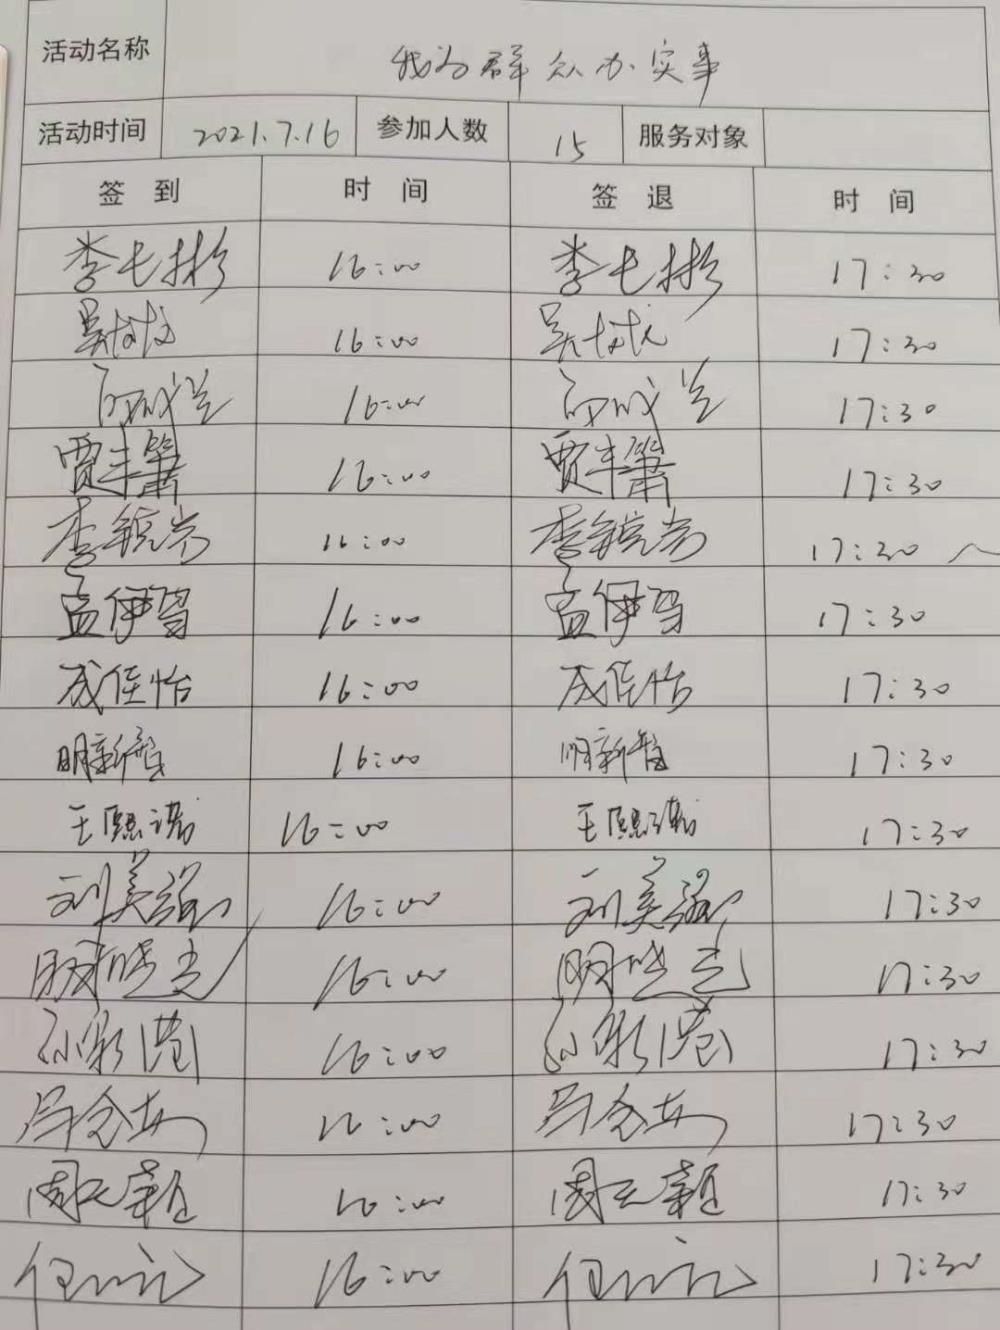 活动名称 我为群众办实事
活动时间 2021.7.16 参加人数 15 服务对象
签到 时间 签退 时间
李七彬 16:00 李七彬 17:30
吴 16:00 吴 17:30
16:00 17:30
贾丰箫 16:00 贾丰箫 17:30
李毓岩 16:00 李毓岩 17:30
孟伊習 16:00 孟伊習 17:30
成佳怡 16:00 成佳怡 17:30
明新智 16:00 明新智 17:30
王熙诺 16:00 王熙诺 17:30
刘美强 16:00 刘美强 17:30
明晓光 16:00 明晓光 17:30
孙彩港 16:00 孙彩港 17:30
吕念安 16:00 吕念安 17:30
周天颖 16:00 周天颖 17:30
16:00 17:30